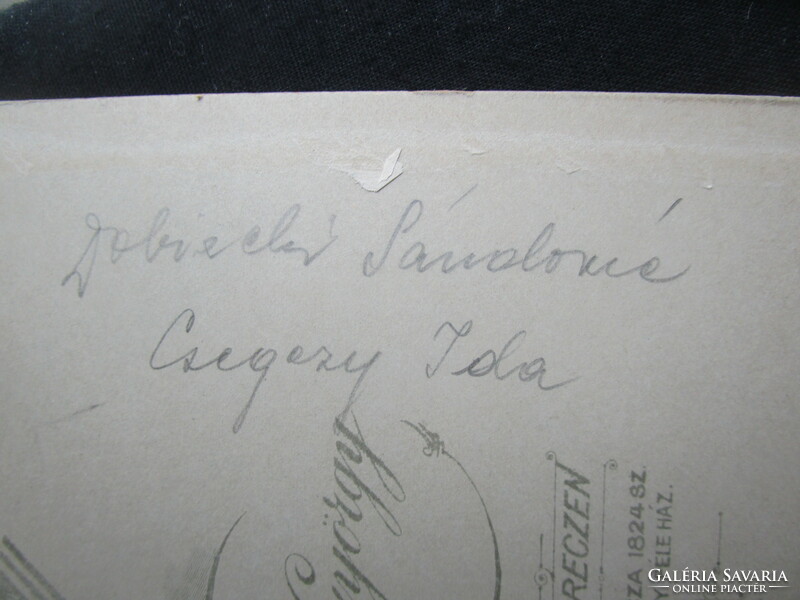 Dobiecki Sándorné
Csegezy Ida
György
RECZEN
ZA 1824 SZ.
ELE HÁZ.
GALÉRIA SAVARIA
ONLINE PIACTÉR